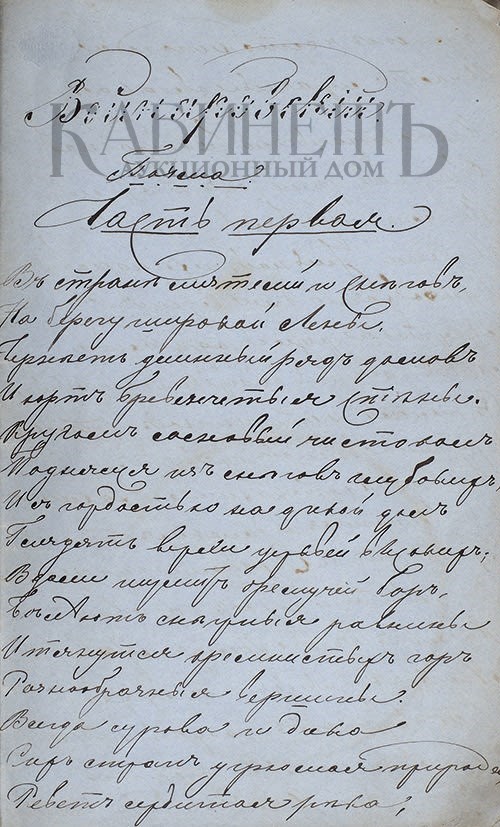 Войнаровскій
КАБИНЕТЪ
АУКЦИОННЫЙ ДОМ
Поэма.
Часть первая.
Въ странѣ мятелей и снѣговъ,
На берегу широкой Лены,
Чернѣетъ длинный рядъ домовъ
И юртъ бревенчатыя стѣны.
Кругомъ сосновый частоколъ
Поднялся изъ снѣговъ глубокихъ,
И съ гордостью на дикой долъ
Глядятъ верхи церквей высокихъ;
Вдали шумитъ дремучій боръ,
Бѣлѣютъ снѣжныя равнины
И тянутся кремнистыхъ горъ
Разнообразныя вершины.
Всегда сурова и дика
Сихъ странъ угрюмая природа
Реветъ сердитая рѣка,